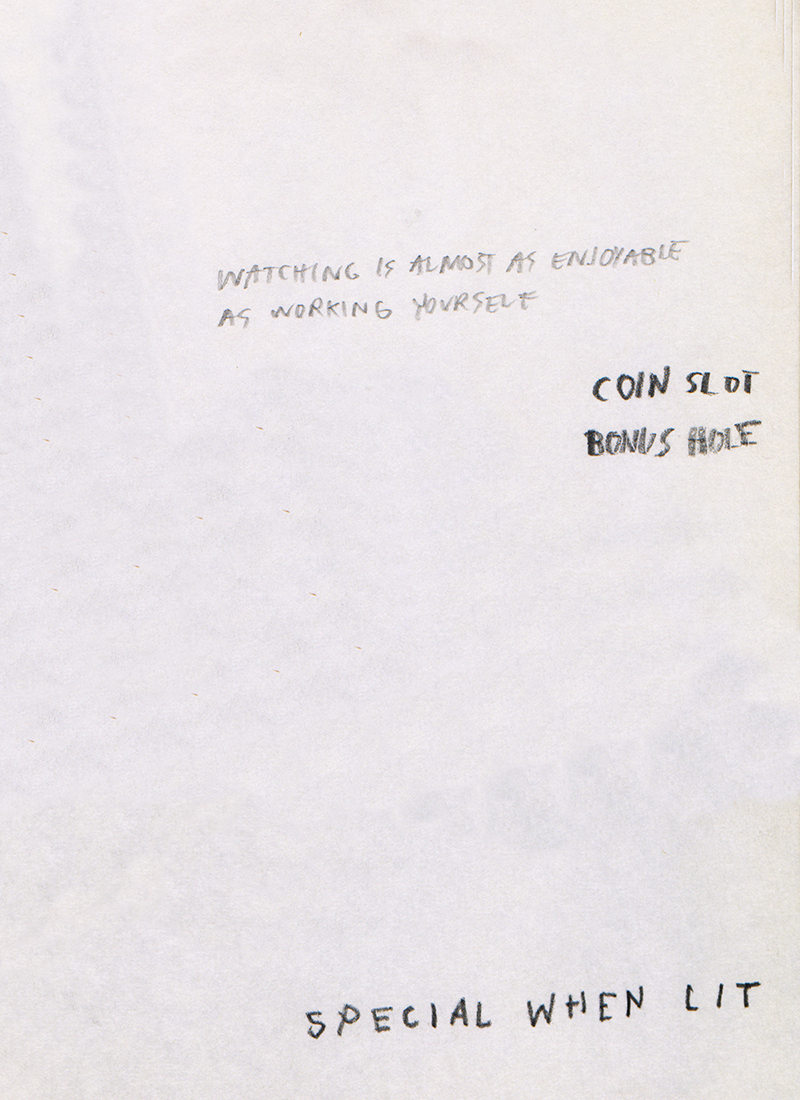 WATCHING IS ALMOST AS ENJOYABLE
AS WORKING YOURSELF
COIN SLOT
BONUS HOLE
SPECIAL WHEN LIT